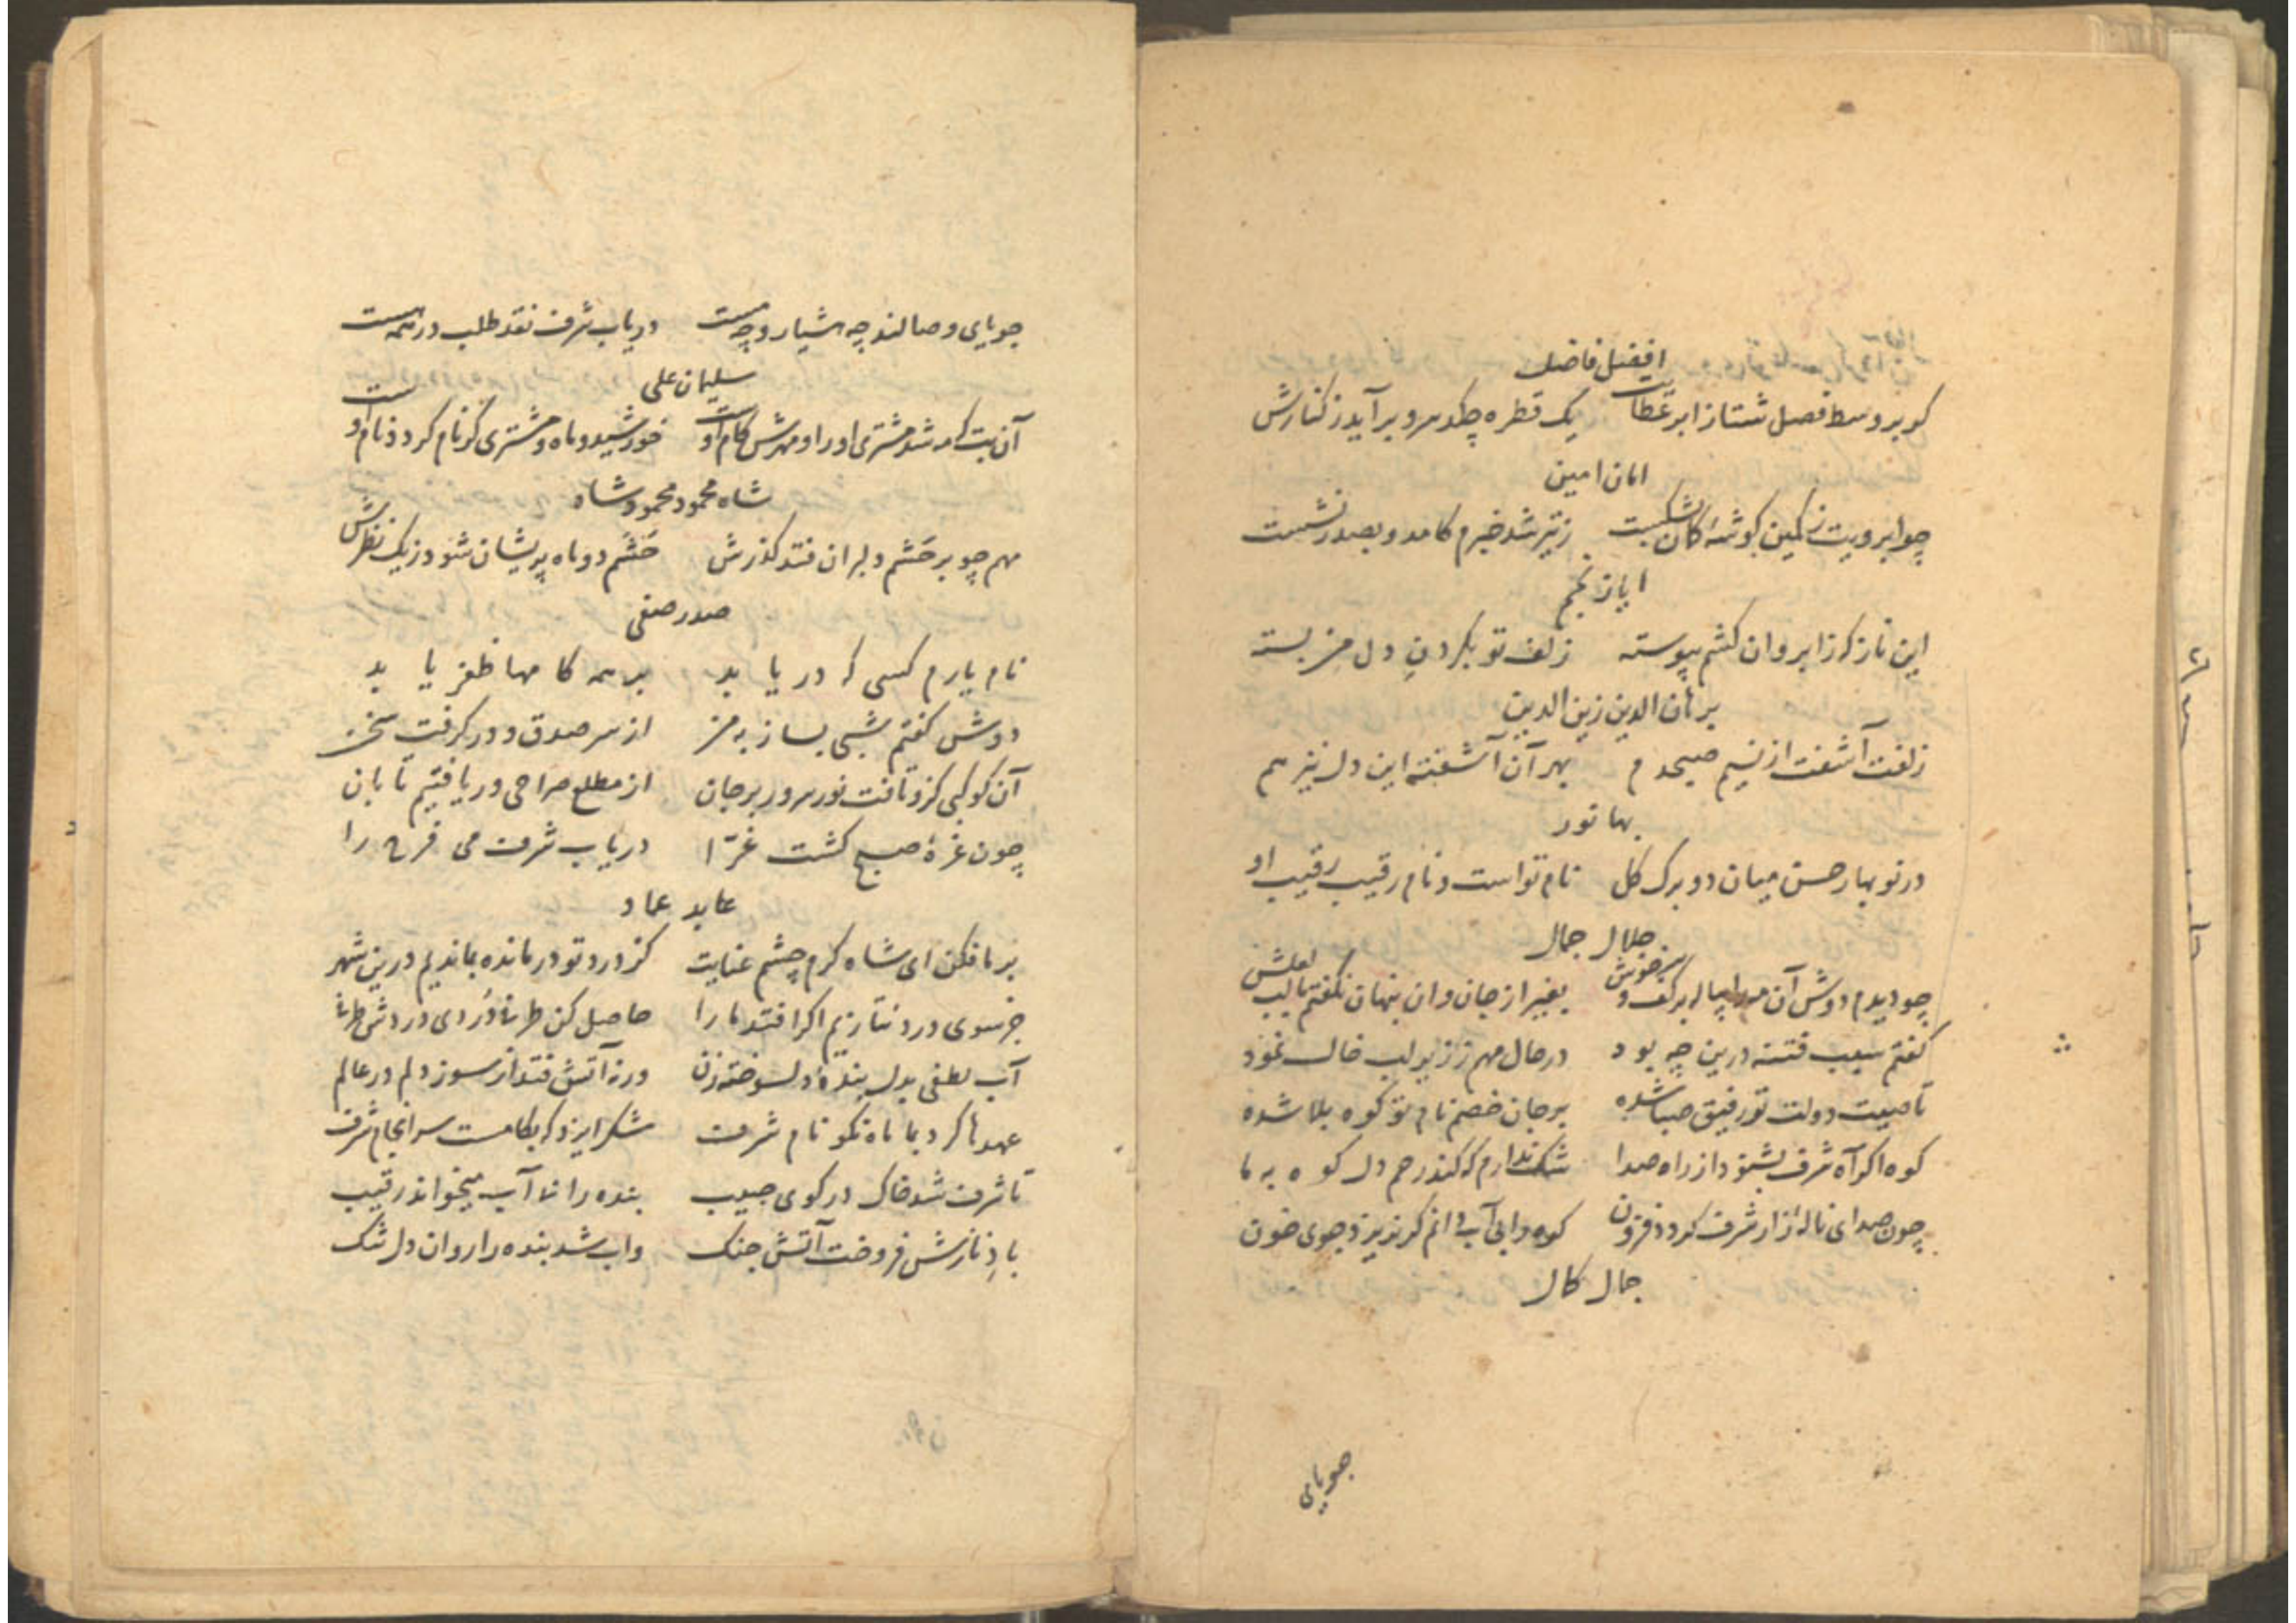 افضل فاضل
کو بر وسط فصل شتا ز ابر عطات یک قطره چکد سرو برآید ز کنارش
امان امین
چو ابرویت ز کمین گوشهٔ کمان بشکست ز تیر شد خبرم کامد و بصدر نشست
ایاز نجم
این ناز که ز ابروان کشم پیوسته زلف تو بکردنِ دل من بسته
برهان الدین زین الدین
زلفت آشفت از نسیم صبحدم بهر آن آشفته این دل نیز هم
بها نور
در نوبهار حسن میان دو برک کل نام تو است و نام رقیب رقیب او
جلال جمال
چو دیدم دوش آن مه را پیاله بر کف و سرخوش بغیر از جان وان پنهان نکفتم با لب لعلش
کفتم سبب فتنه درین چه بود در حال مهم ز زیر لب خال نمود
تا صیت دولت تو رفیق صبا شده بر جان خصم نام تو کوه بلا شده
کوه اکر آه شرف بشنود از راه صدا شک ندارم که کند رحم دل کوه به ما
چون صدای نالهٔ زار شرف کردد فزون کوه را بی آب دانم کر نریزد جوی خون
جمال کمال
جویای
جویای وصالند چه هشیار و چه مست دریاب شرف نقد طلب در همه هست
سلیمان علی
آن بت که شد مشتری او را و مهرش کام اوست خورشید و ماه و مشتری کر نام کردد نام اوست
شاه محمود محمود شاه
مهم چو بر حَشَم دلبران فتد کذرش حَشَم دو ماه پریشان شود ز یک نظرش
صدر صفی
نام یارم کسی که دریابد بر همه کامها ظفر یابد
دوش کفتم شبی بساز به من از سر صدق و در کرفت سخن
آن کوکبی کزو تافت نور سرور بر جان از مطلع صراحی دریافتیم تابان
چون غرهٔ صبح کشت غرّا دریاب شرف می فرح را
عابد عماد
بر ما فکن ای شاه کرم چشم عنایت کز درد تو درمانده بماندیم درین شهر
جز سوی درد نتازیم اکر افتد ما را حاصل کن طربها دُردی دردش طربها
آب لطفی بدل بندهٔ دلسوخته زن ورنه آتش فتد از سوز دلم در عالم
عهدها کرد بما ماه نکو نام شرف شکر ایزد که بکامست سرانجام شرف
تا شرف شد خاک در کوی حبیب بنده را ما آب میخواند رقیب
بادِ نازش فروخت آتش جنک واب شد بنده را روان دل تنک